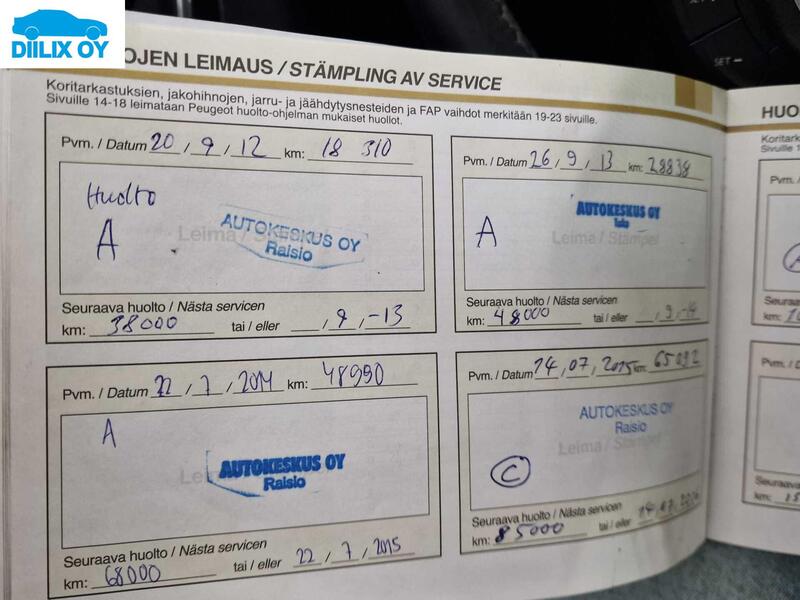 DIILIX OY
OJEN LEIMAUS / STÄMPLING AV SERVICE
Koritarkastuksien, jakohihnojen, jarru- ja jäähdytysnesteiden ja FAP vaihdot merkitään 19-23 sivuille.
Sivuille 14-18 leimataan Peugeot huolto-ohjelman mukaiset huollot.
Pvm. / Datum 20 , 9 , 12 km: 18 310
Huolto
A
AUTOKESKUS OY
Raisio
Leima / Stämpel
Seuraava huolto / Nästa servicen
km: 38000 tai / eller , 9 , -13
Pvm. / Datum 26 , 9 , 13 km: 28838
A
AUTOKESKUS OY
Leima / Stämpel
Seuraava huolto / Nästa servicen
km: 48000 tai / eller , 9 , -14
Pvm. / Datum 22 , 7 , 2014 km: 48990
A
AUTOKESKUS OY
Raisio
Seuraava huolto / Nästa servicen
km: 68000 tai / eller 22 , 7 , 2015
Pvm. / Datum 14 , 07 , 2015 km: 65092
AUTOKESKUS OY
Raisio
Leima / Stämpel
C
Seuraava huolto / Nästa servicen
km: 85000 tai / eller 14 , 07 , 2016
HUO
Koritark
Sivuille 1
Pvm. /
Seuraa
km:
Pvm.
Seuraa
km: